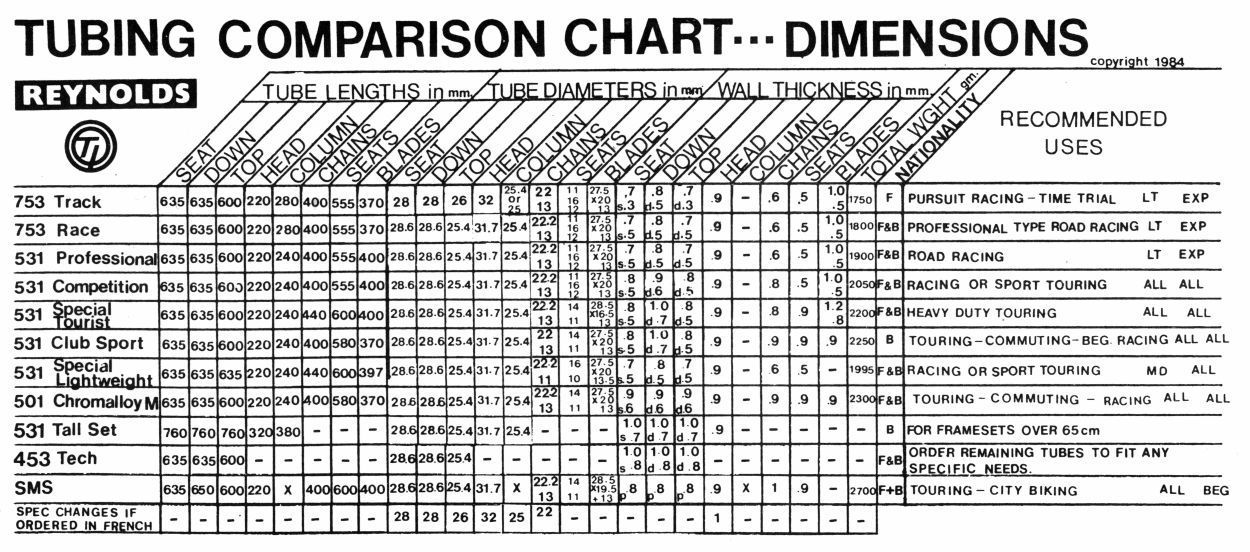 TUBING COMPARISON CHART... DIMENSIONS
copyright 1984
REYNOLDS
TUBE LENGTHS in mm. TUBE DIAMETERS in mm WALL THICKNESS in mm.
RECOMMENDED
USES
SEAT DOWN TOP HEAD COLUMN CHAINS SEATS BLADES SEAT DOWN TOP HEAD COLUMN CHAINS SEATS BLADES SEAT DOWN TOP HEAD COLUMN CHAINS SEATS BLADES TOTAL WGHT gm. NATIONALITY
753 Track 635 635 600 220 280 400 555 370 28 28 26 32 25.4 or 25 22 13 11 16 12 27.5 x20 13 .7 s.3 .8 d.5 .7 d.3 .9 - .6 .5 1.0 .5 1750 F PURSUIT RACING - TIME TRIAL LT EXP
753 Race 635 635 600 220 280 400 555 370 28.6 28.6 25.4 31.7 25.4 22.2 13 11 16 12 27.5 x20 13 .7 s.5 .8 d.5 .7 d.5 .9 - .6 .5 1.0 .5 1800 F&B PROFESSIONAL TYPE ROAD RACING LT EXP
531 Professional 635 635 600 220 240 400 555 400 28.6 28.6 25.4 31.7 25.4 22.2 13 11 16 12 27.5 x20 13 .7 s.5 .8 d.5 .7 d.5 .9 - .6 .5 1.0 .5 1900 F&B ROAD RACING LT EXP
531 Competition 635 635 603 220 240 400 555 400 28.6 28.6 25.4 31.7 25.4 22.2 13 11 16 12 27.5 x20 13 .8 s.5 .9 d.6 .8 d.5 .9 - .8 .5 1.0 .5 2050 F&B RACING OR SPORT TOURING ALL ALL
531 Special Tourist 635 635 600 220 240 440 600 400 28.6 28.6 25.4 31.7 25.4 22.2 13 14 11 28.5 x16.5 13 .8 s.5 1.0 d.7 .8 d.5 .9 - .8 .9 1.2 .8 2200 F&B HEAVY DUTY TOURING ALL ALL
531 Club Sport 635 635 600 220 240 400 580 370 28.6 28.6 25.4 31.7 25.4 22 13 14 11 27.5 x20 13 .8 s.5 1.0 d.7 .8 d.5 .9 - .9 .9 .9 2250 B TOURING-COMMUTING-BEG. RACING ALL ALL
531 Special Lightweight 635 635 635 220 240 440 600 397 28.6 28.6 25.4 31.7 25.4 22.2 11 16 10 27.5 x20 13.5 .7 s.5 .8 d.5 .7 d.5 .9 - .6 .5 - 1995 F&B RACING OR SPORT TOURING MD ALL
501 Chromalloy M 635 635 600 220 240 400 580 370 28.6 28.6 25.4 31.7 25.4 22.2 13 14 11 27.5 x20 13 .9 s.6 .9 d.6 .9 d.6 .9 - .9 .9 .9 2300 F&B TOURING - COMMUTING - RACING ALL ALL
531 Tall Set 760 760 760 320 380 - - - 28.6 28.6 25.4 31.7 25.4 - - - 1.0 s.7 1.0 d.7 1.0 d.7 .9 - - - - B FOR FRAMESETS OVER 65cm
453 Tech 635 635 600 - - - - - 28.6 28.6 25.4 - - - - - 1.0 s.8 1.0 d.8 1.0 d.8 - - - - - F&B ORDER REMAINING TUBES TO FIT ANY
SPECIFIC NEEDS.
SMS 635 650 600 220 X 400 600 400 28.6 28.6 25.4 31.7 X 22.2 13 14 11 28.5 x19.5 +13 .8 p .8 p .8 p .9 X 1 .9 - 2700 F+B TOURING - CITY BIKING ALL BEG
SPEC CHANGES IF
ORDERED IN FRENCH - - - - - - - - 28 28 26 32 25 22 - - - - - 1 - - - - -